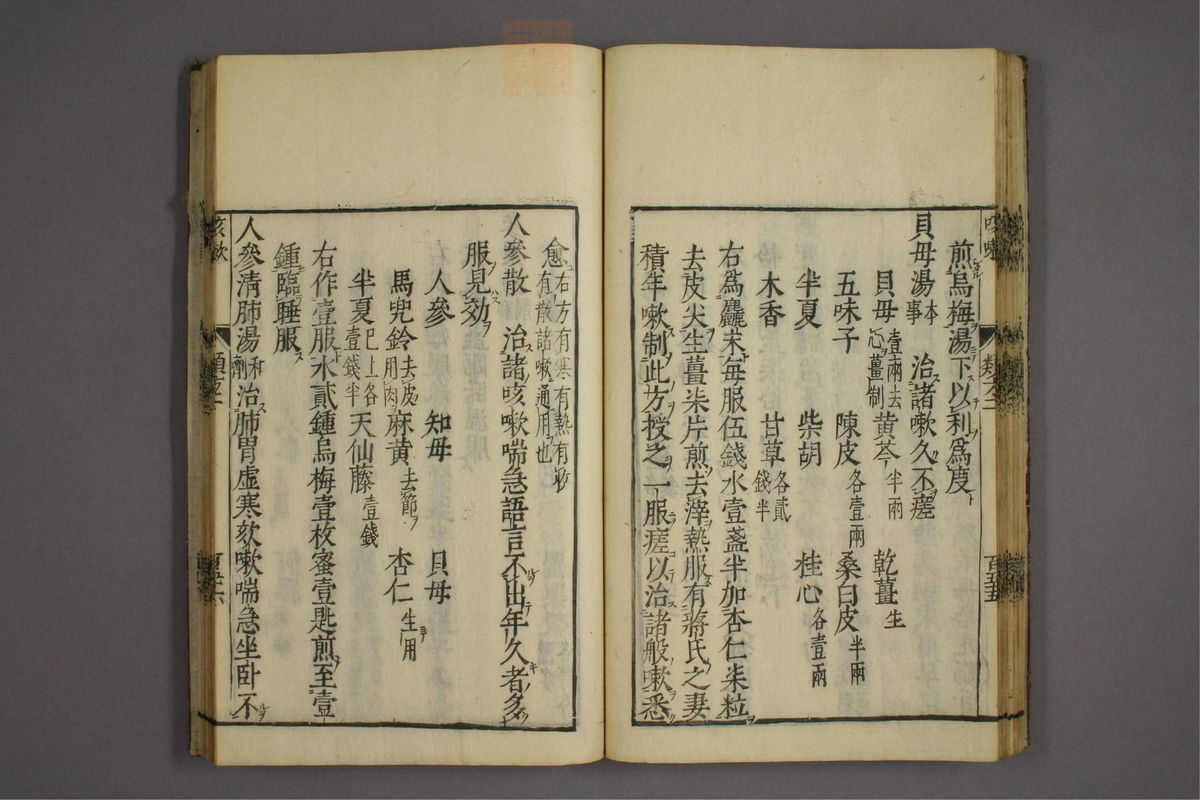 煎烏梅湯下以利爲度
貝母湯本事 治諸嗽久不瘥
貝母壹兩去心薑制 黄芩半兩 乾薑生
五味子 陳皮各壹兩 桑白皮半兩
半夏 柴胡 桂心各壹兩
木香 甘草各貳錢半
右爲麤末每服伍錢水壹盞半加杏仁柒粒
去皮尖生薑柒片煎去滓熱服有蔣氏之妻
積年嗽制此方授之一服瘥以治諸般嗽悉
愈右方有寒有熱有收有散諸嗽通用也
人參散 治諸咳嗽喘急語言不出年久者多
服見効
人參 知母 貝母
馬兜鈴去皮用肉 麻黄去節 杏仁生用
半夏已上各壹錢半 天仙藤壹錢
右作壹服水貳鍾烏梅壹枚蜜壹匙煎至壹
鍾臨睡服
人參清肺湯和劑 治肺胃虛寒欬嗽喘急坐卧不